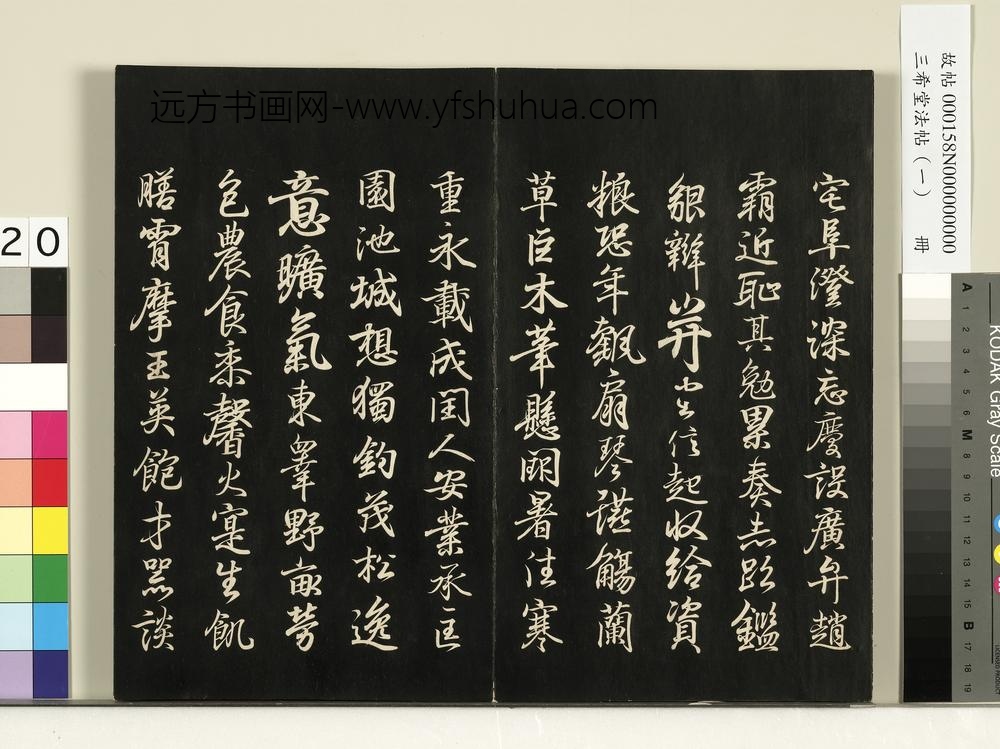 宅阜澄深忘虞設廣弁趙
霸近恥其勉累奏赤路鑑
貌辨幷公信起收給資
糧恐年觀扇琴讌觴蘭
草巨木筆懸閉暑往寒
重永載成閏人安業承匡
園池城想獨鈞茂松逸
意曠氣東睪野畝勞
包農食黍馨火寔生飢
膳霄摩王英飽才器談
远方书画网-www.yfshuhua.com
故帖 000158N000000000
三希堂法帖（一） 冊
20
KODAK Gray Scale
A 1 2 3 4 5 6 M 8 9 10 11 12 13 14 15 B 17 18 19